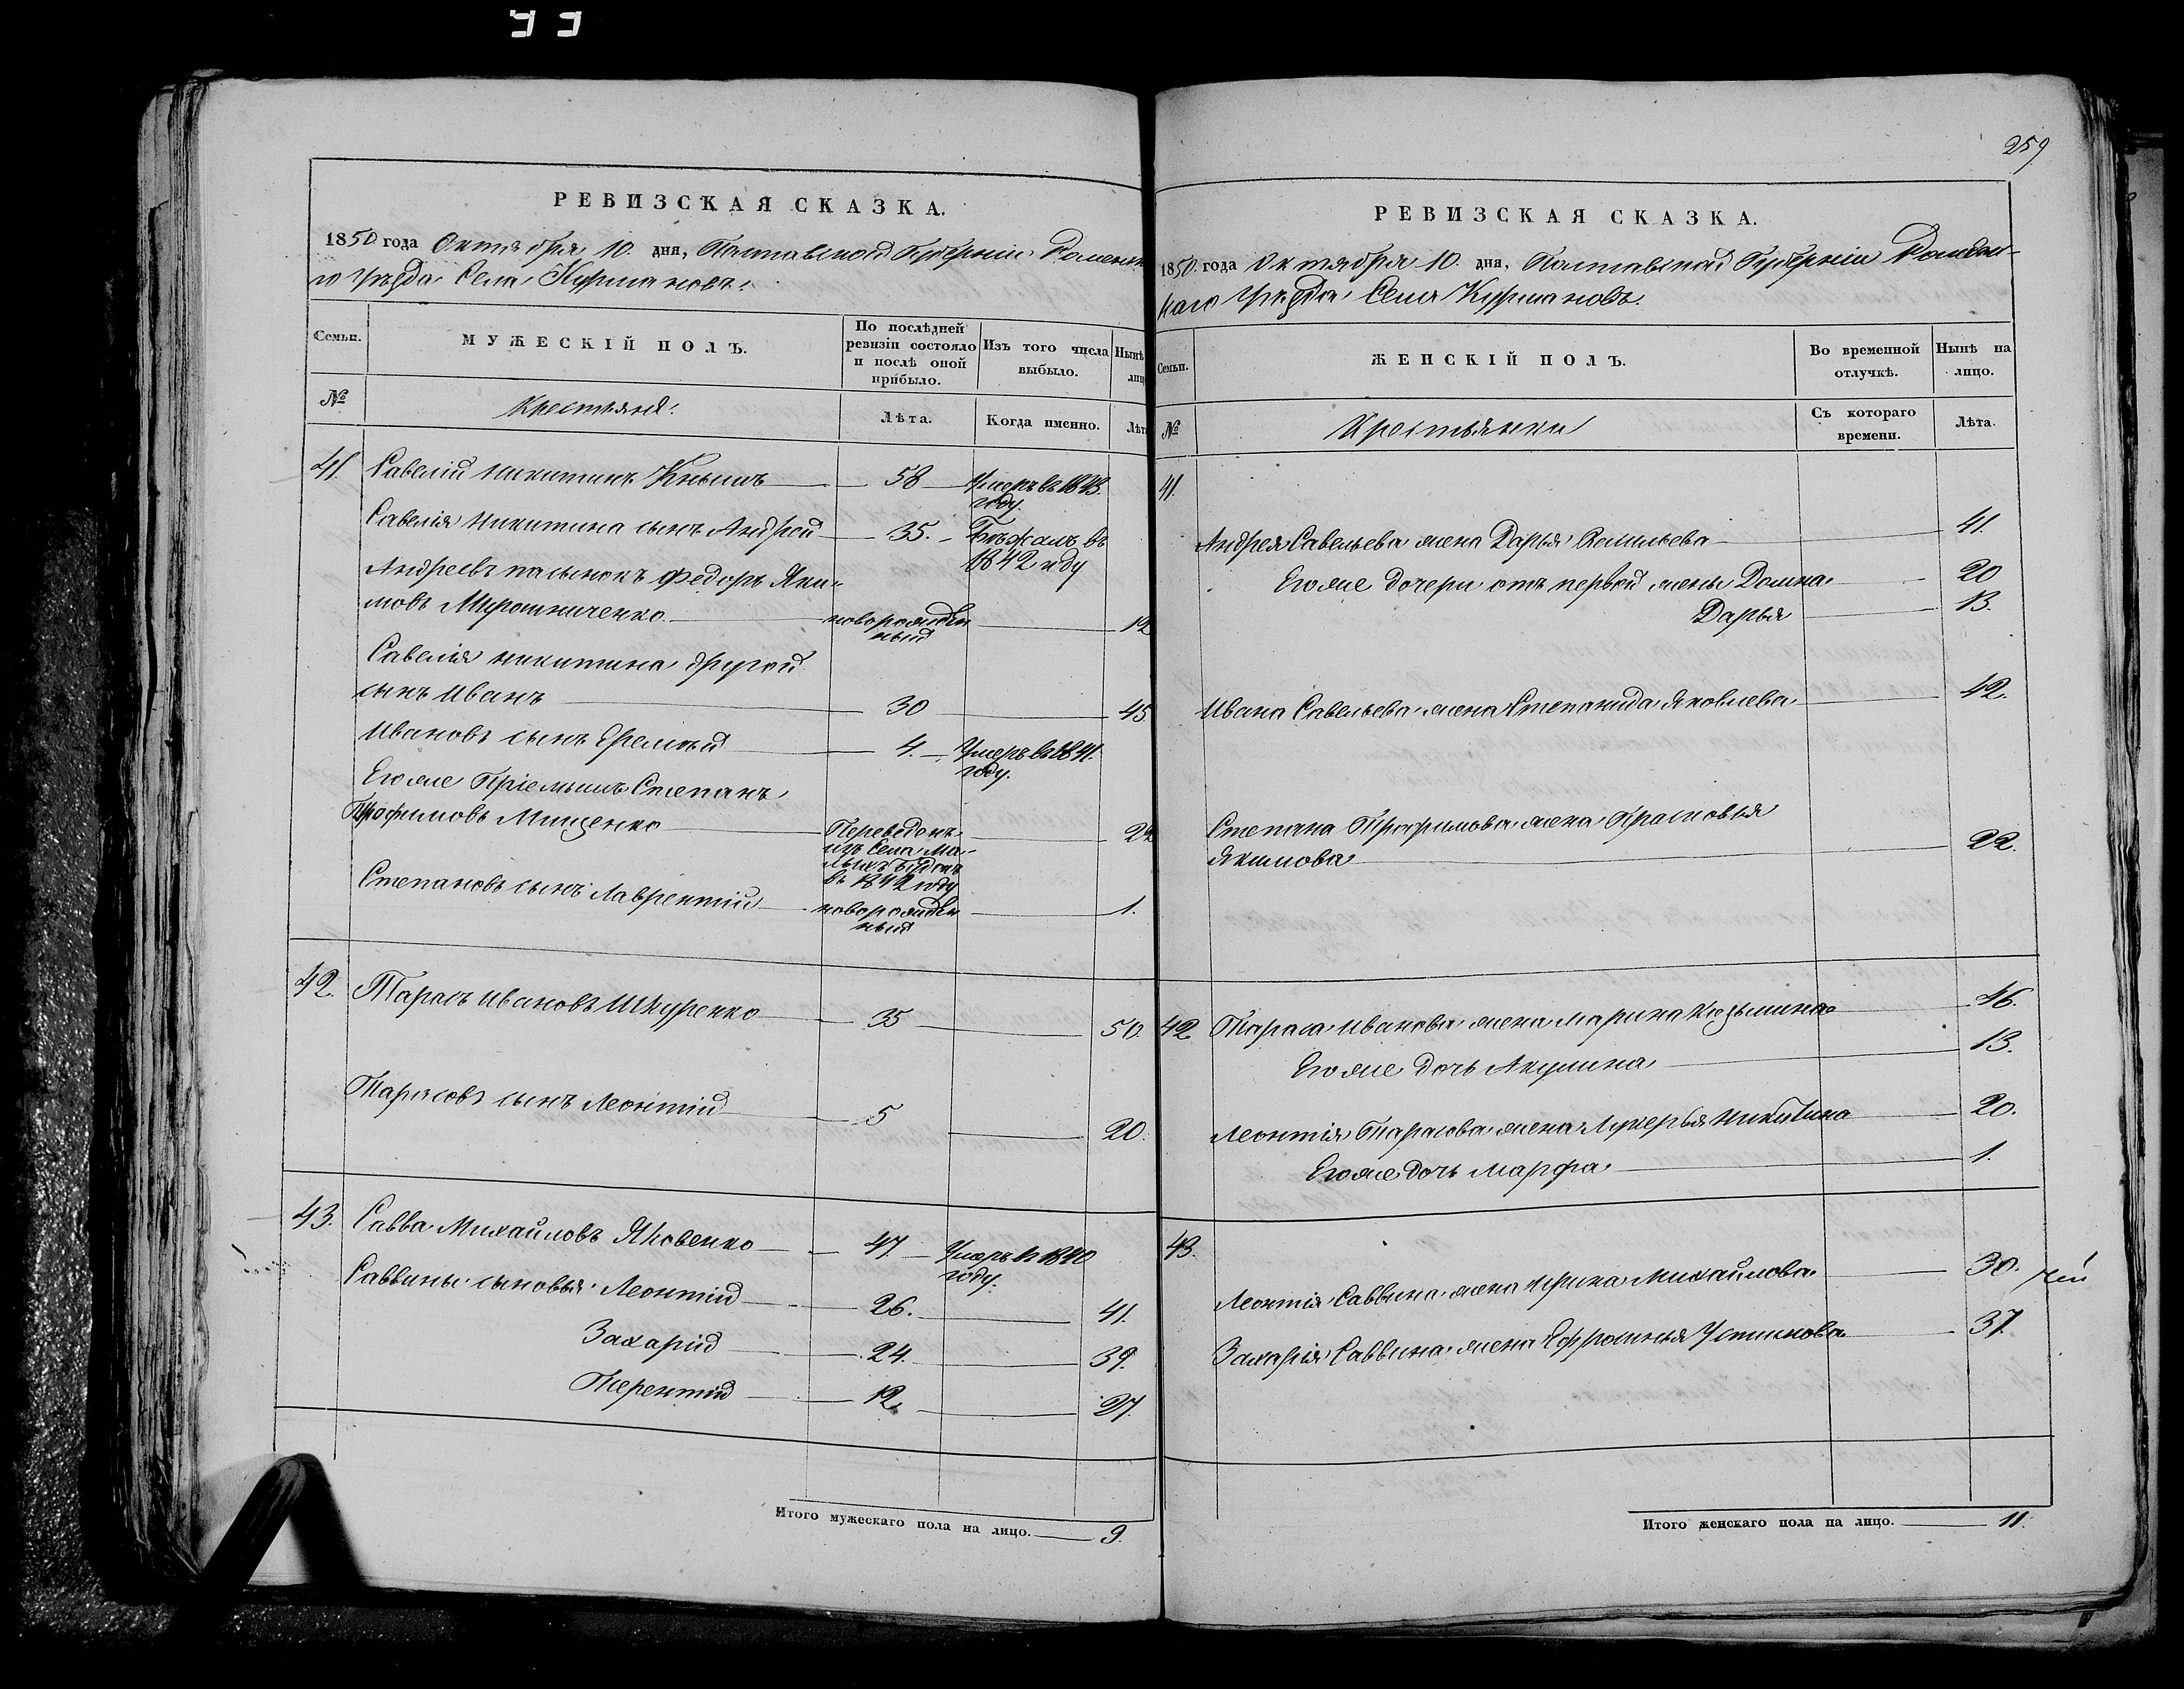 259
РЕВИЗСКАЯ СКАЗКА.
1850 года Октября 10. дня, Полтавской Губерніи Роменска
го Уѣзда Села Курмановъ.
Семьи.
МУЖЕСКІЙ ПОЛЪ.
По послѣдней ревизіи состояло и послѣ оной прибыло.
Изъ того числа выбыло.
Нынѣ
лиц
№
Крестьяня.
Лѣта.
Когда именно.
Лѣт
41. Савелій Никитинъ Книшъ 58 Умеръ въ 1843
году.
Савелія Никитина сынъ Андрей 35. Бѣжалъ въ
1842 году
Андреевъ пасынокъ Федоръ Яки-
мовъ Мирошниченко новорожден
ный 12
Савелія Никитина другой
сынъ Иванъ 30 45
Ивановъ сынъ Еремѣй 4. Умеръ въ 1841.
году.
Его же Пріемышъ Степанъ
Трофимовъ Мищенко Переведенъ 22
изъ Села Ма-
лыхъ Будокъ
въ 1842 году
Степановъ сынъ Лаврентій новорожден 1.
ный
42. Тарасъ Ивановъ Шкуренко 35 50.
Тарасовъ сынъ Леонтій 5 20.
43. Савва Михайловъ Яковенко 47. Умеръ въ 1840
году.
Саввины сыновья Леонтій 26. 41.
Захарій 24. 39.
Терентій 12. 27.
Итого мужескаго пола на лицо. 9.
РЕВИЗСКАЯ СКАЗКА.
1850. года Октября 10. дня, Полтавской Губерніи Ромен-
скаго Уѣзда Села Курмановъ.
Семьи.
ЖЕНСКІЙ ПОЛЪ.
Во временной отлучкѣ.
Нынѣ на лицо.
№
Крестьянки
Съ котораго времени.
Лѣта.
41.
Андрея Савельева жена Дарья 41.
Его же дочери отъ первой жены Домна 20
Дарья 13.
Ивана Савельева жена Степанида Яковлева 42.
Степана Трофимова жена Прасковья
Якимова 22.
42 Тараса Иванова жена Марина Кузьмина 46.
Его же дочь Акулина 13.
Леонтія Тарасова жена Лукерья Никитина 20.
Его же дочь Марфа 1.
43.
Леонтія Саввина жена Ирина Михайлова 30.
Захарія Саввина жена Ефросинья Устинова 37.
Итого женскаго пола на лицо. 11.